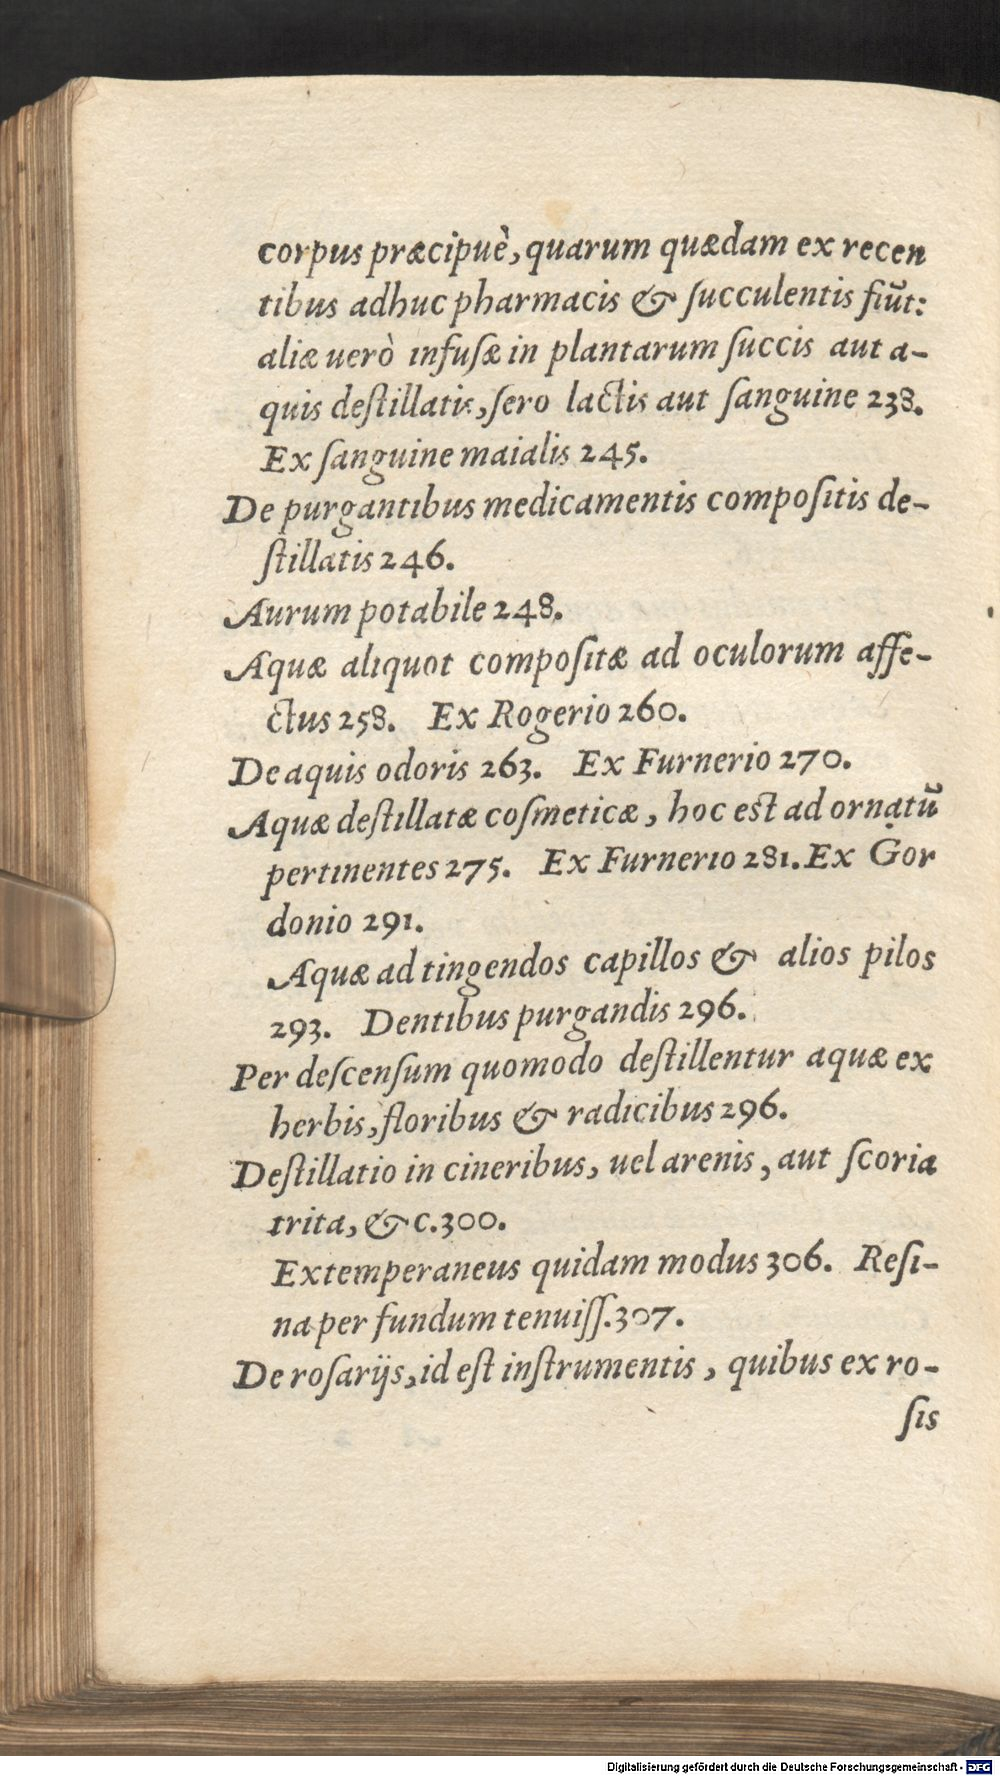 corpus præcipuè, quarum quædam ex recen
tibus adhuc pharmacis & ſucculentis fiūt:
aliæ uerò infuſæ in plantarum ſuccis aut a-
quis deſtillatis, ſero lactis aut ſanguine 238.
Ex ſanguine maialis 245.
De purgantibus medicamentis compoſitis de-
ſtillatis 246.
Aurum potabile 248.
Aquæ aliquot compoſitæ ad oculorum affe-
ctus 258. Ex Rogerio 260.
De aquis odoris 263. Ex Furnerio 270.
Aquæ deſtillatæ coſmeticæ, hoc est ad ornatū
pertinentes 275. Ex Furnerio 281. Ex Gor
donio 291.
Aquæ ad tingendos capillos & alios pilos
293. Dentibus purgandis 296.
Per deſcenſum quomodo deſtillentur aquæ ex
herbis, floribus & radicibus 296.
Deſtillatio in cineribus, uel arenis, aut ſcoria
trita, &c. 300.
Extemperaneus quidam modus 306. Reſi-
na per fundum tenuiſſ. 307.
De roſarijs, id eſt inſtrumentis, quibus ex ro-
ſis
Digitalisierung gefördert durch die Deutsche Forschungsgemeinschaft - DFG